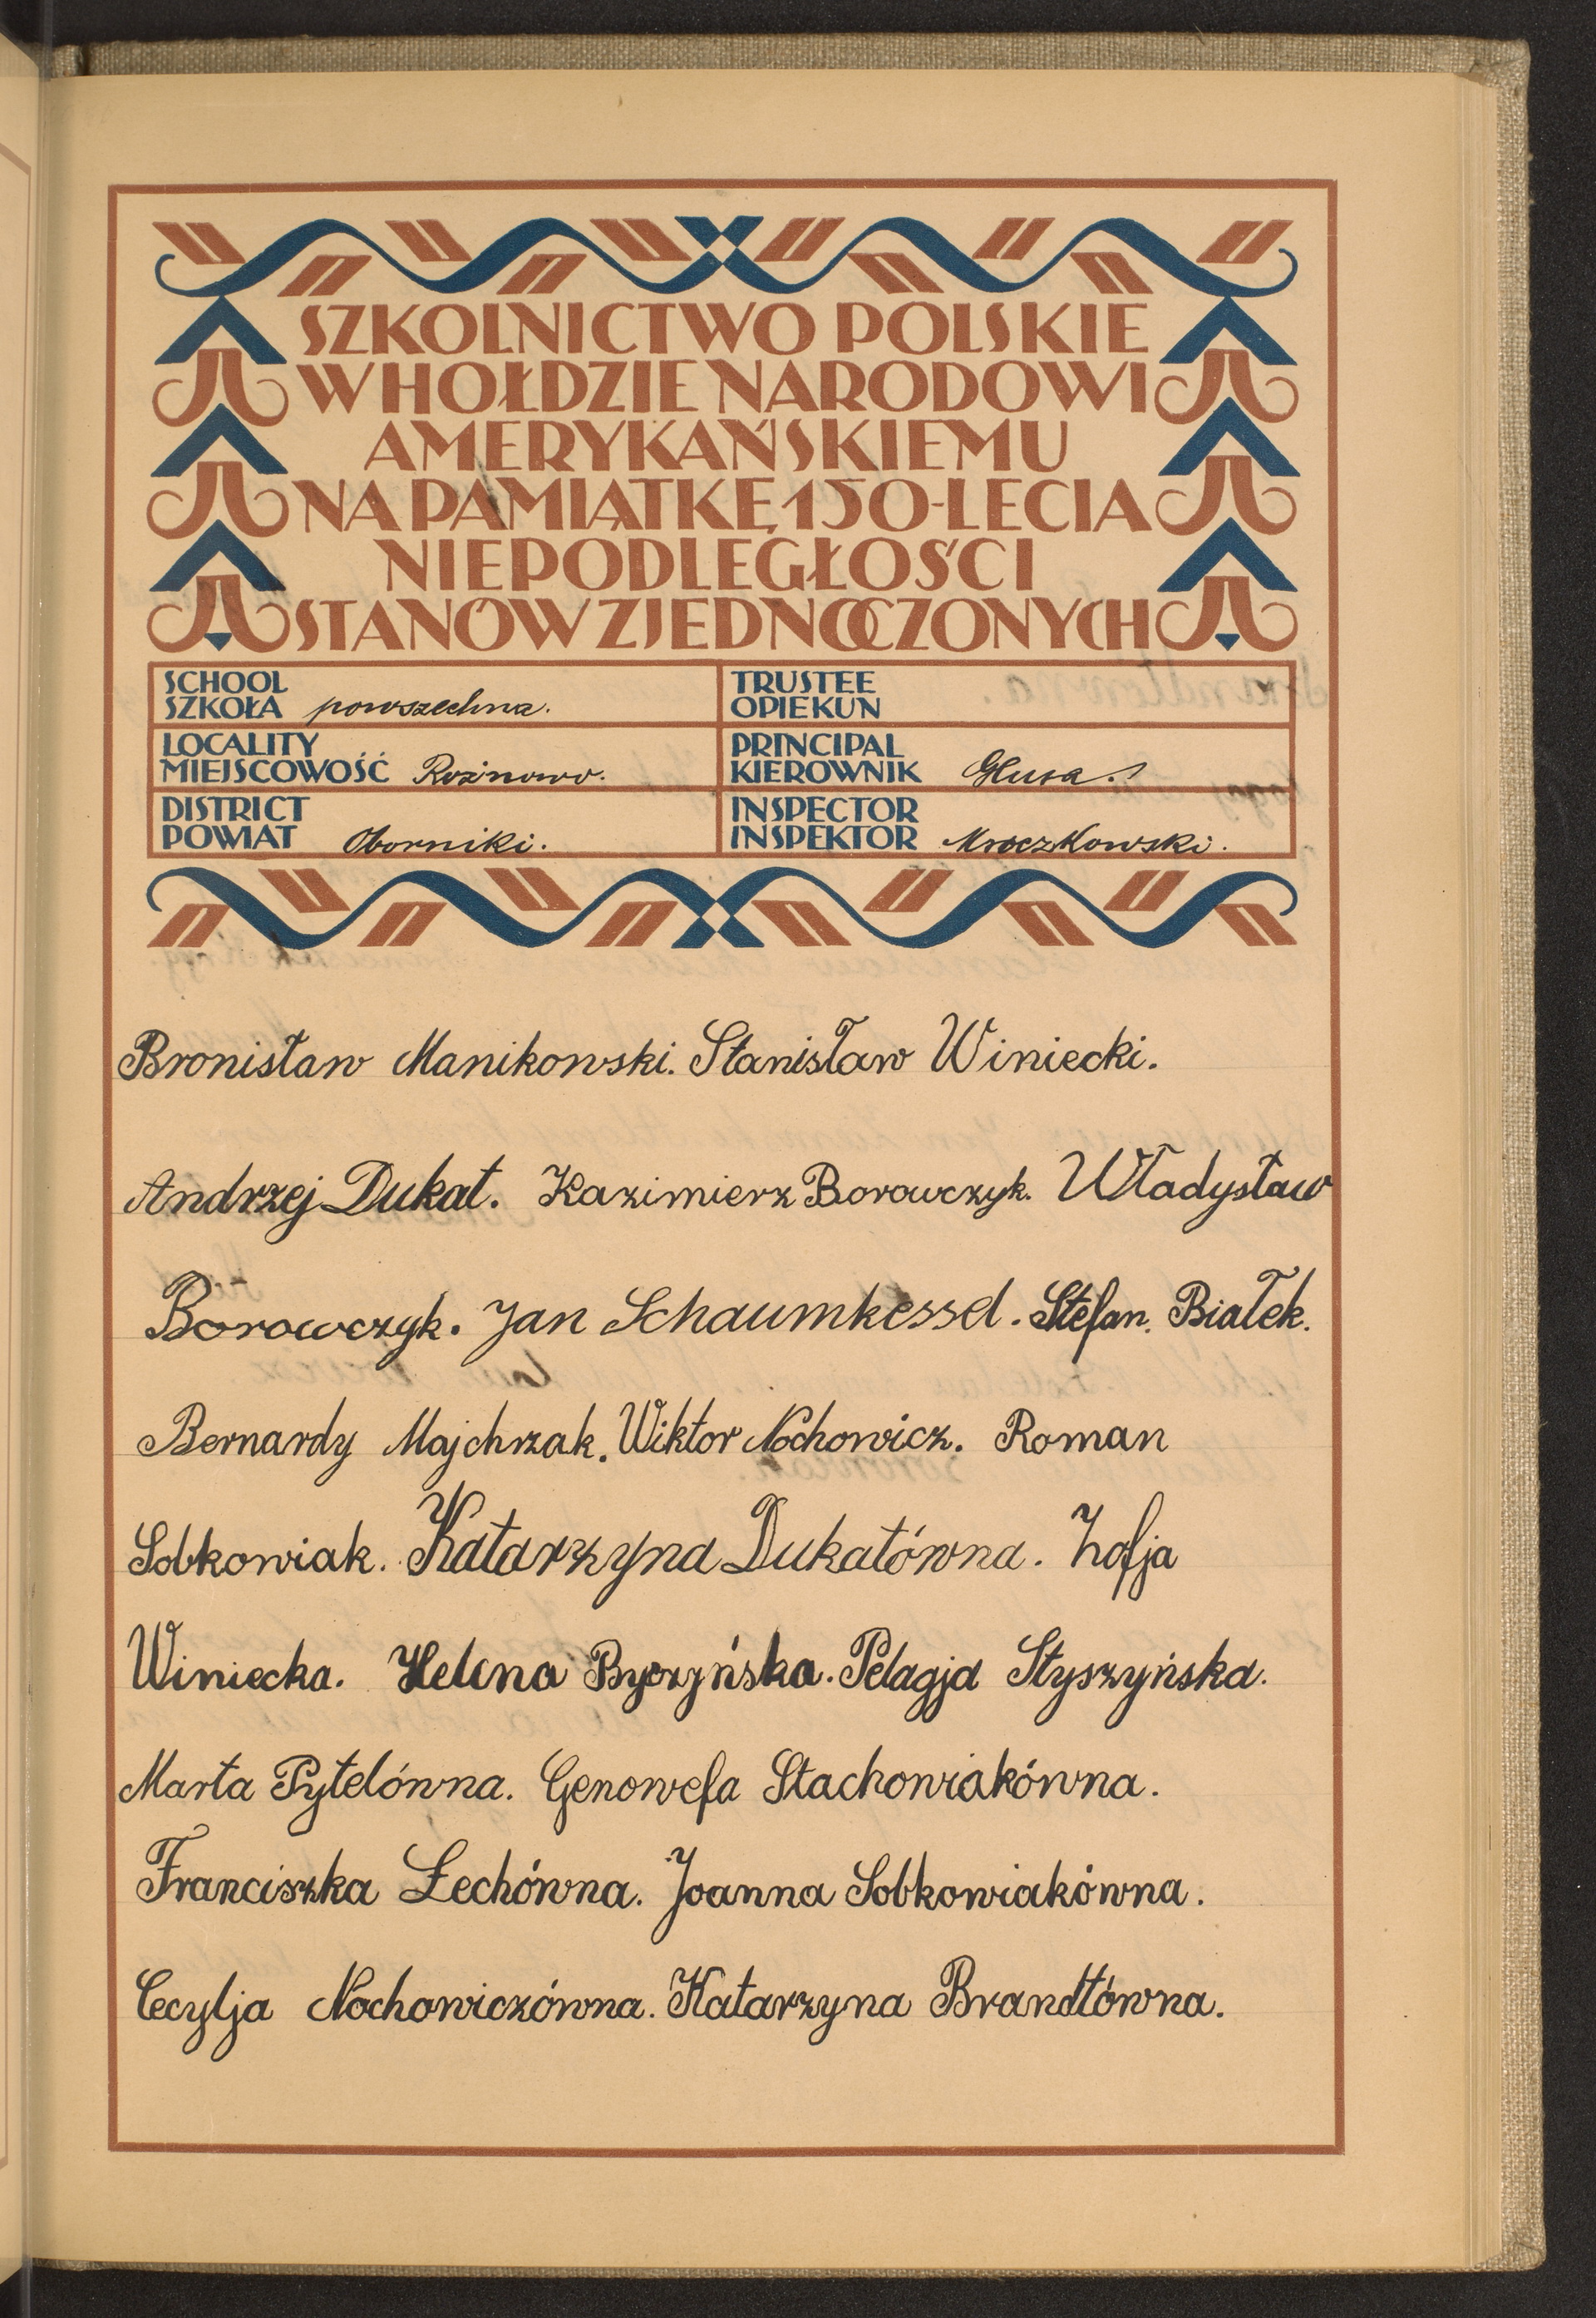 SZKOLNICTWO POLSKIE
W HOŁDZIE NARODOWI
AMERYKAŃSKIEMU
NA PAMIĄTKĘ 150-LECIA
NIEPODLEGŁOŚCI
STANÓW ZJEDNOCZONYCH
SCHOOL
SZKOŁA powszechna.
TRUSTEE
OPIEKUN
LOCALITY
MIEJSCOWOŚĆ Rożnowo.
PRINCIPAL
KIEROWNIK Glusa.
DISTRICT
POWIAT Oborniki.
INSPECTOR
INSPEKTOR Mroczkowski.
Bronisław Manikowski. Stanisław Winiecki.
Andrzej Dukat. Kazimierz Borowczyk. Władysław
Borowczyk. Jan Schaumkessel. Stefan. Białek.
Bernardy Majchrzak. Wiktor Nochowicz. Roman
Sobkowiak. Katarzyna Dukatówna. Zofja
Winiecka. Helena Byczyńska. Pelagja Styszyńska.
Marta Pytelówna. Genowefa Stachowiakówna.
Franciszka Lechówna. Joanna Sobkowiakówna.
Cecylja Nochowiczówna. Katarzyna Brandtówna.